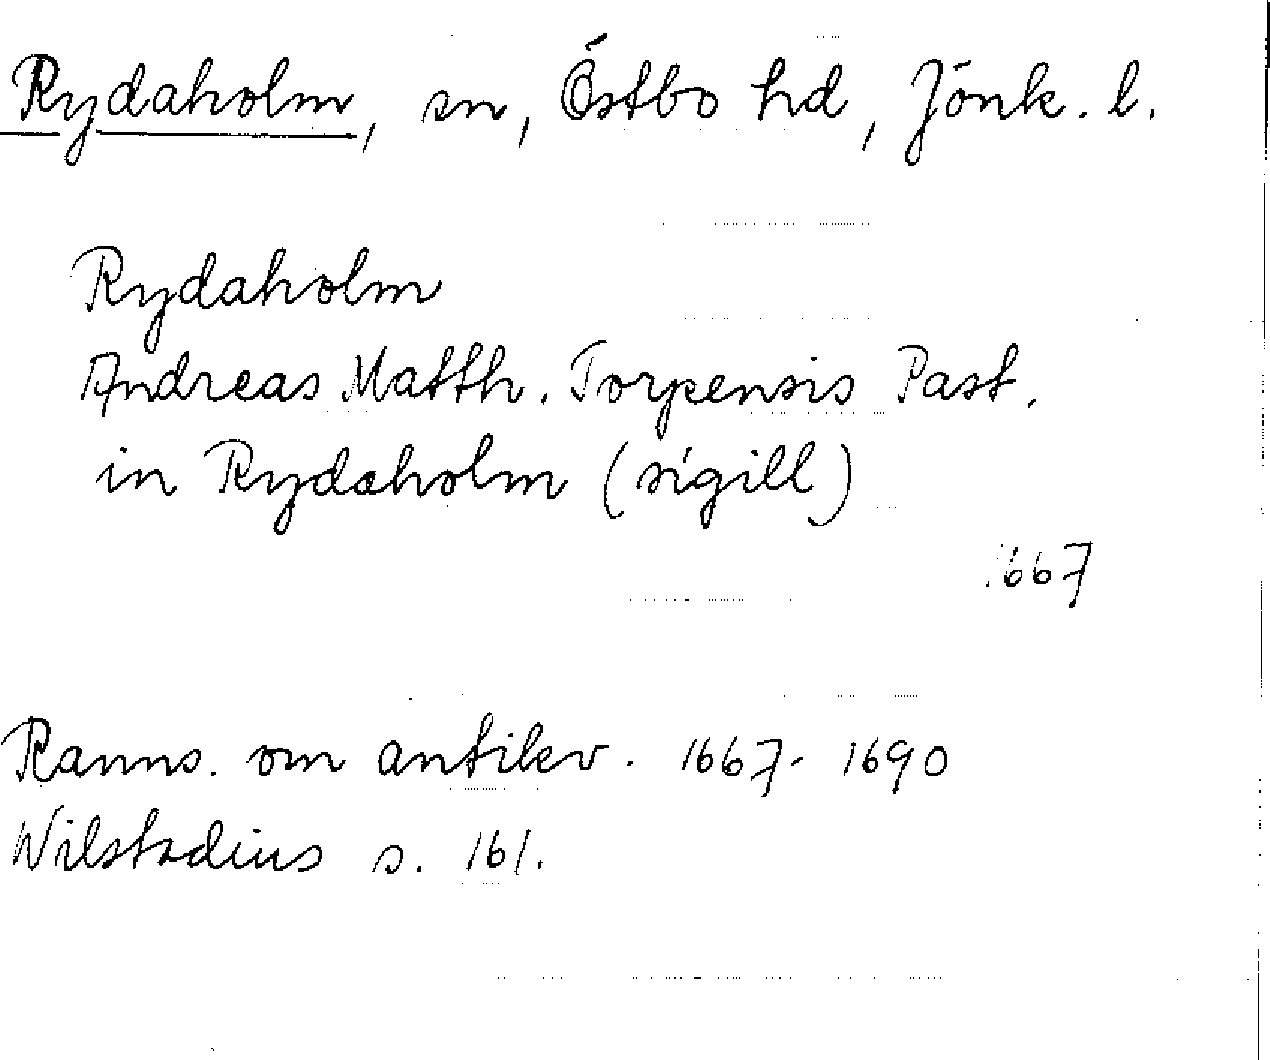 Rydaholm, sn, Östbo hd, Jönk. l.
Rydaholm
Andreas Matth. Torpensis Past.
in Rydaholm (sigill)
1667
Ranns. om antikv. 1667-1690
Wilstadius s. 161.